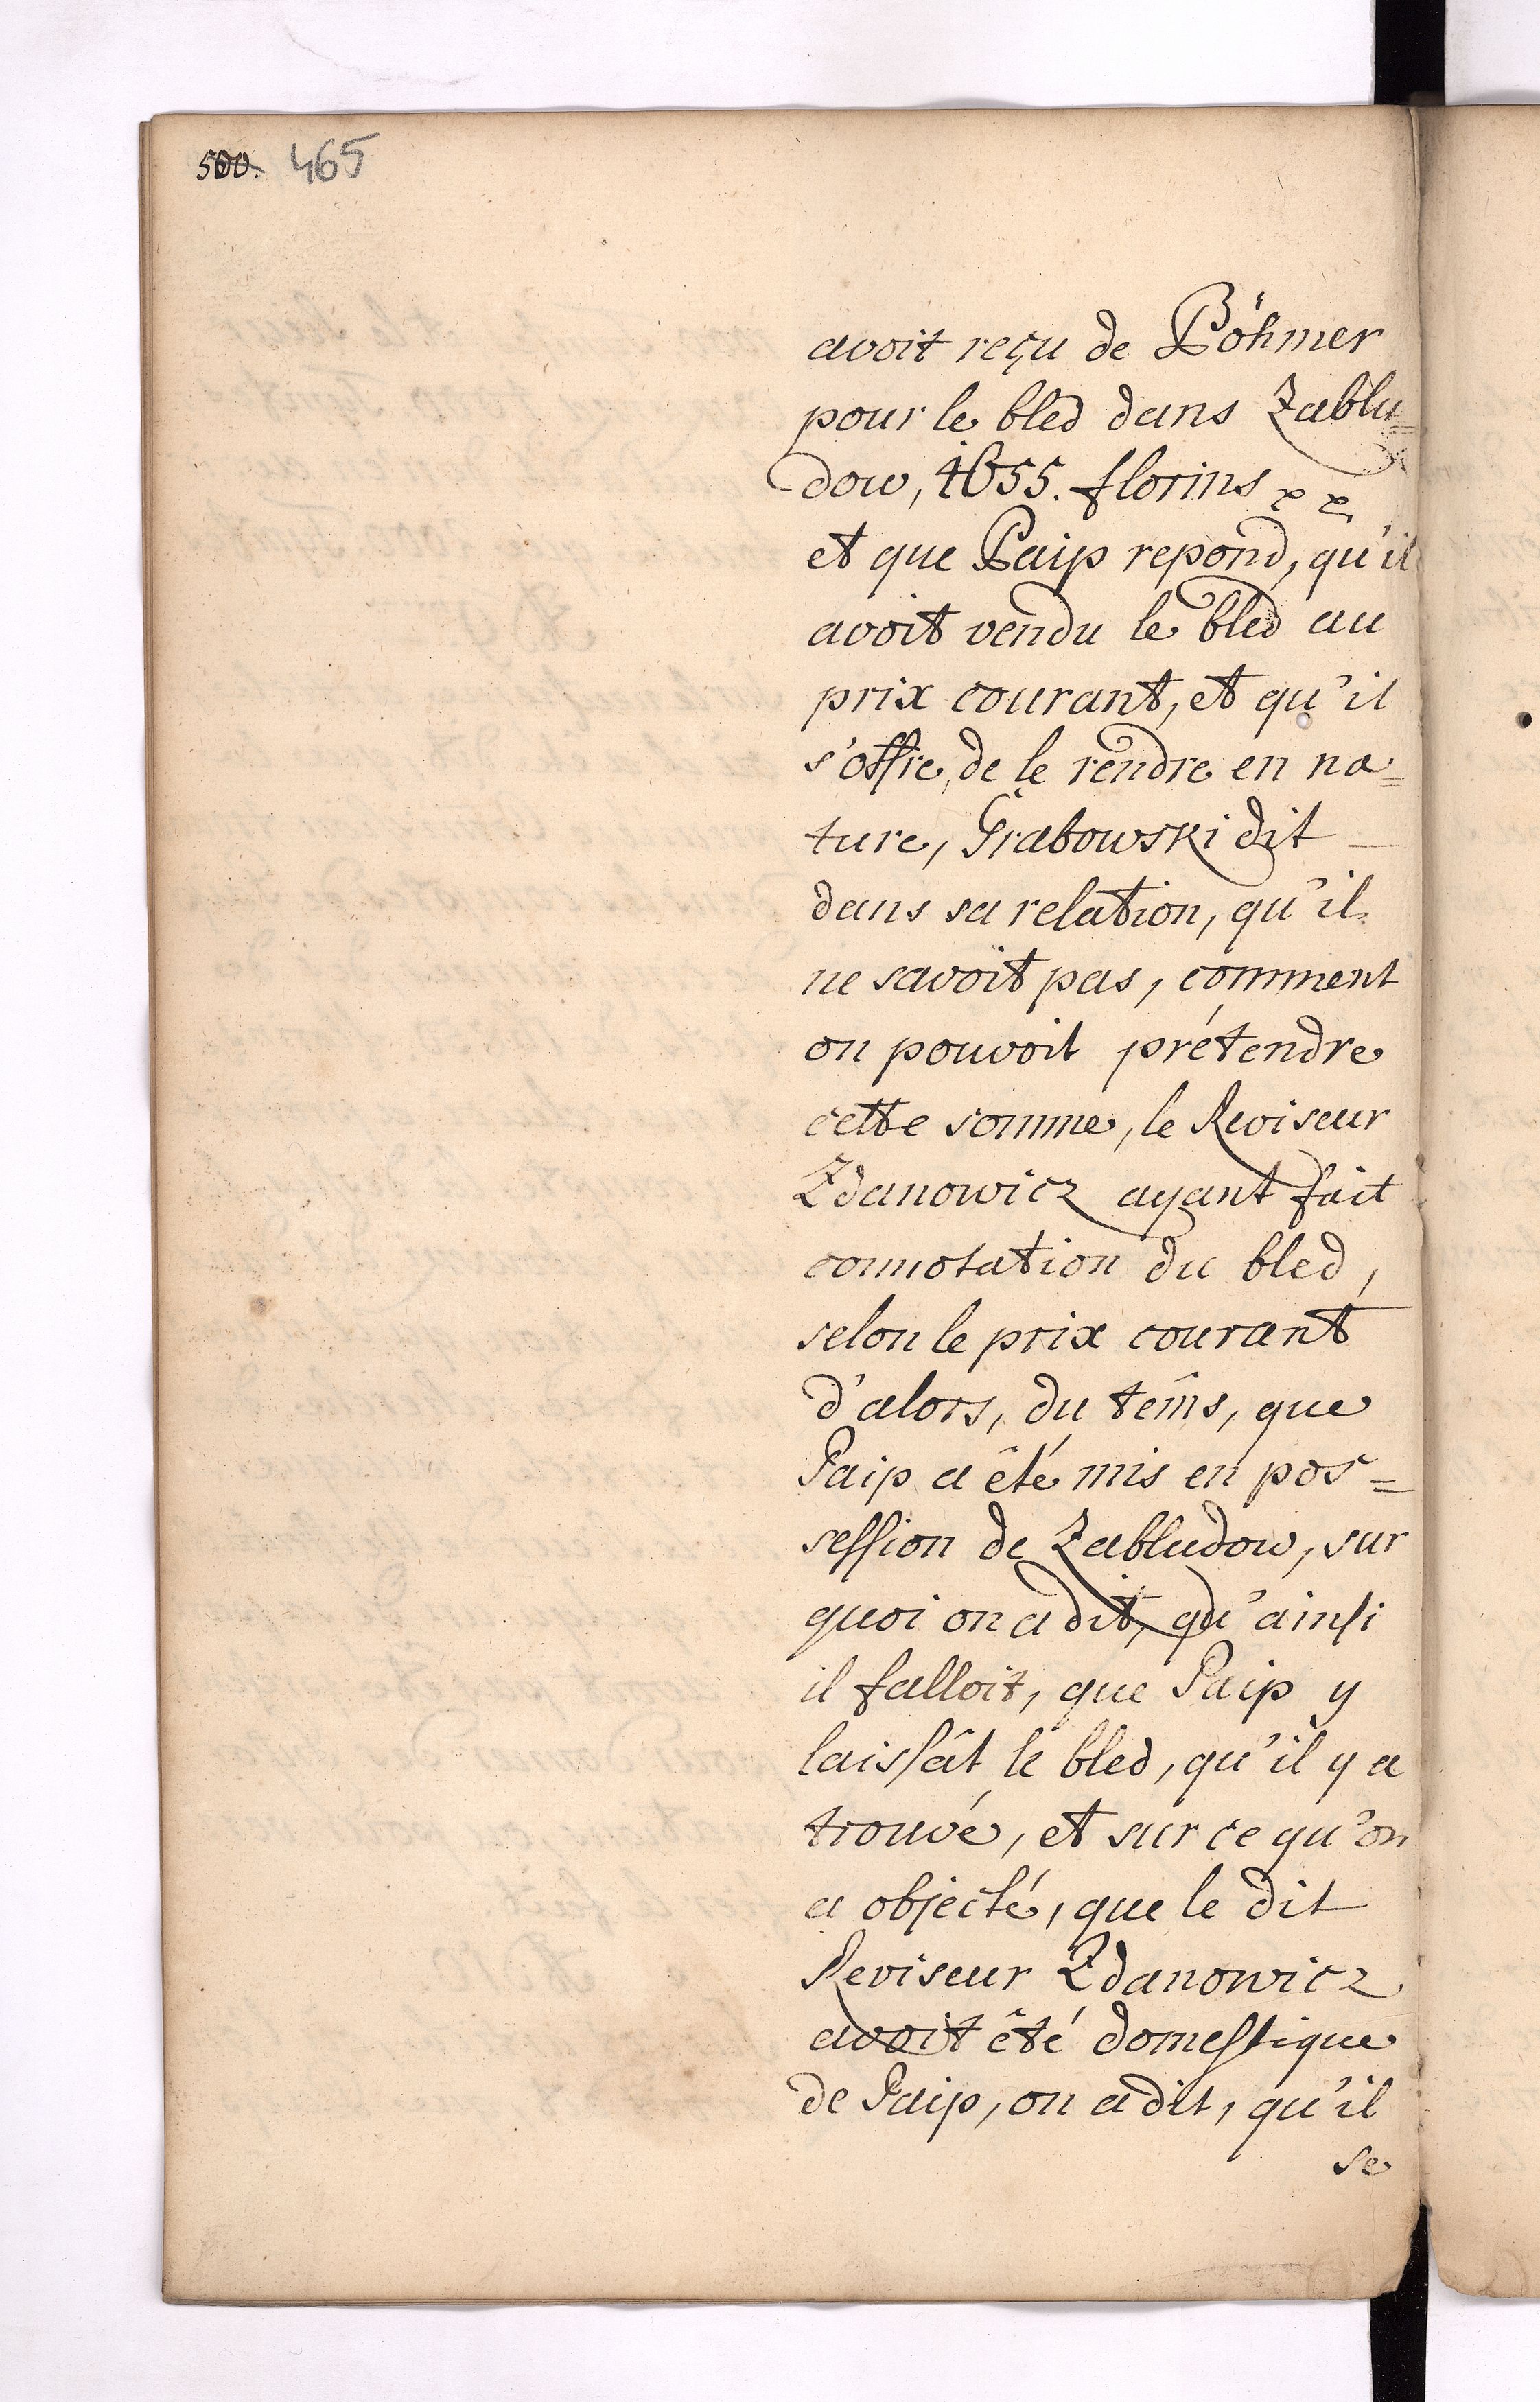 500. 465
avoit reçu de Böhmer
pour le bled dans Zablu=
dow, 1655. florins
et que Paip repond, qu'il
avoit vendu le bled au
prix courant, et qu'il
s'offre, de le rendre en na=
ture, Grabowski dit
dans sa relation, qu'il
ne savoit pas, comment
on pouvoit prétendre
cette somme, le Reviseur
Zdanowicz ayant fait
connotation du bled,
selon le prix courant
d'alors, du tems, que
Paip a été mis en pos=
session de Zabludow, sur
quoi on a dit, qu'ainsi
il falloit, que Paip y
laissât le bled, qu'il y a
trouvé, et sur ce qu'on
a objecté, que le dit
Reviseur Zdanowicz
avoit été domestique
de Paip, on a dit, qu'il
se